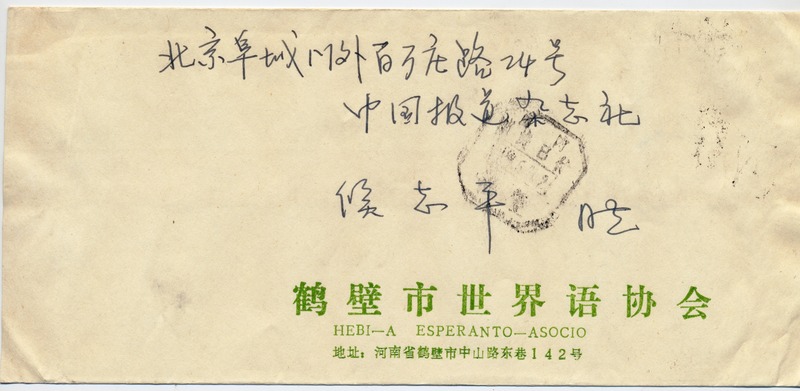 北京阜城门外百万庄路24号
中国报道杂志社
侯志平
鹤壁市世界语协会
HEBI—A ESPERANTO—ASOCIO
地址：河南省鹤壁市中山路东巷142号